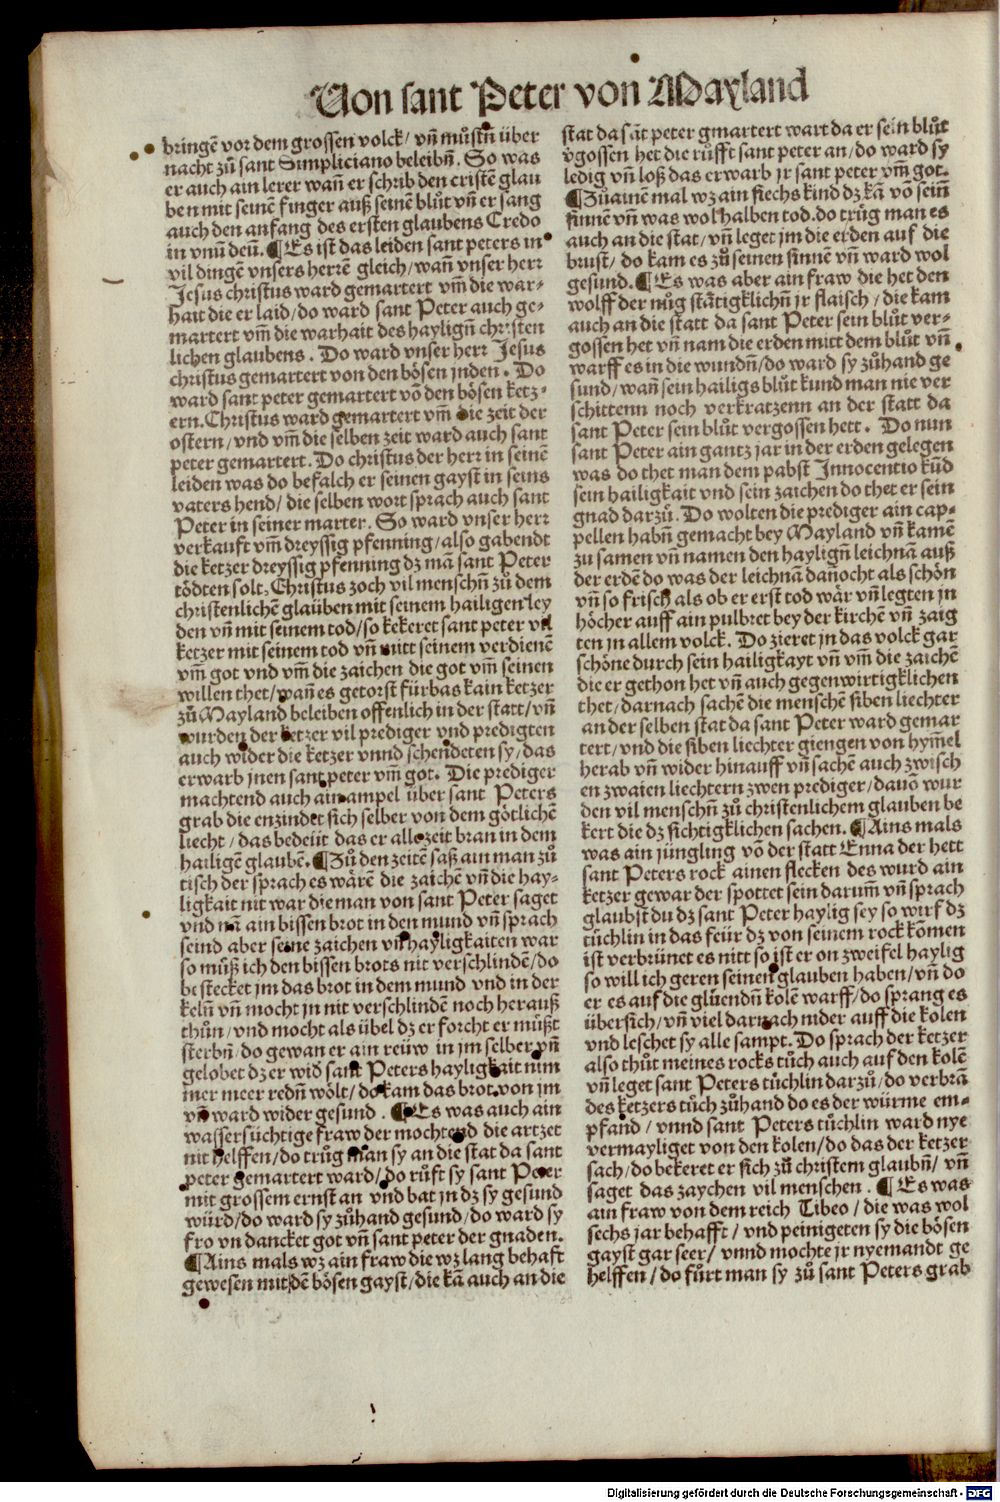 Von sant Peter von Mayland
bringē vor dem grossen volck/ vn̄ můstn̄ über
nacht zů sant Simpliciano beleibn̄. So was
er auch ain lerer wan̄ er schrib den cristē glau
ben mit seinē finger auß seinē blůt vn̄ er sang
auch den anfang des ersten glaubens Credo
in vnū deū. ¶Es ist das leiden sant peters in
vil dingē vnsers herrē gleich/ wan̄ vnser herr
Jesus christus ward gemartert vm̄ die war-
hait die er laid/ do ward sant Peter auch ge-
martert vm̄ die warhait des haylign̄ christen
lichen glaubens. Do ward vnser herr Jesus
christus gemartert von den bösen jnden. Do
ward sant peter gemartert vō den bösen ketz-
ern. Christus ward gemartert vm̄ die zeit der
ostern/ vnd vm̄ die selben zeit ward auch sant
peter gemartert. Do christus der herr in seinē
leiden was do befalch er seinen gayst in seins
vaters hend/ die selben wort sprach auch sant
Peter in seiner marter. So ward vnser herr
verkauft vm̄ dreyssig pfenning/ also gabendt
die ketzer dreyssig pfenning dz mā sant Peter
tödten solt, Christus zoch vil menschn̄ zů dem
christenlichē glaüben mit seinem hailigen ley
den vn̄ mit seinem tod/ so kekeret sant peter vil
ketzer mit seinem tod vn̄ mitt seinem verdienē
vm̄ got vnd vm̄ die zaichen die got vm̄ seinen
willen thet/ wan̄ es getorst fürbas kain ketzer
zů Mayland beleiben offenlich in der statt/ vn̄
wurden der ketzer vil prediger vnd predigten
auch wider die ketzer vnnd schendeten sy/ das
erwarb jnen sant peter vm̄ got. Die prediger
machtend auch ain ampel über sant Peters
grab die enzindet sich selber von dem götlichē
liecht/ das bedeüt das er alle zeit bran in dem
hailigē glaubē. ¶Zů den zeitē saß ain man zů
tisch der sprach es wärē die zaichē vn̄ die hay-
ligkait nit war die man von sant Peter saget
vnd nā ain bissen brot in den mund vn̄ sprach
seind aber seine zaichen vn̄ hayligkaiten war
so můß ich den bissen brots nit verschlindē/ do
bestecket jm das brot in dem mund vnd in der
keln̄ vn̄ mocht jn nit verschlindē noch herauß
thůn/ vnd mocht als übel dz er forcht er můßt
sterbn̄/ do gewan er ain reüw in jm selber vn̄
gelobet dz er wid sant Peters hayligkait nim
mer meer redn̄ wölt/ do kam das brot von jm
vn̄ ward wider gesund. ¶Es was auch ain
wassersüchtige fraw der mochtend die artzet
nit helffen/ do trůg man sy an die stat da sant
peter gemartert ward/ do růft sy sant Peter
mit grossem ernst an vnd bat jn dz sy gesund
würd/ do ward sy zůhand gesund/ do ward sy
fro vn dancket got vn̄ sant peter der gnaden.
¶Ains mals wz ain fraw die wz lang behaft
gewesen mit dē bösen gayst/ die kā auch an die
stat da sāt peter gmartert wart da er sein blůt
v̄gossen het die růfft sant peter an/ do ward sy
ledig vn̄ loß das erwarb jr sant peter vm̄ got.
¶Zů ainē mal wz ain siechs kind dz kā vō sein̄
sinnē vn̄ was wol halben tod. do trůg man es
auch an die stat/ vn̄ leget jm die erden auf die
brust/ do kam es zů seinen sinnē vn̄ ward wol
gesund. ¶Es was aber ain fraw die het den
wolff der nůg stätigklichn̄ jr flaisch/ die kam
auch an die statt da sant Peter sein blůt ver-
gossen het vn̄ nam die erden mitt dem blůt vn̄
warff es in die wundn̄/ do ward sy zůhand ge
sund/ wan̄ sein hailigs blůt kund man nie ver
schittenn noch verkratzenn an der statt da
sant Peter sein blůt vergossen hett. Do nun
sant Peter ain gantz jar in der erden gelegen
was do thet man dem pabst Innocentio kūd
sein hailigkait vnd sein zaichen do thet er sein
gnad darzů. Do wolten die prediger ain cap-
pellen habn̄ gemacht bey Mayland vn̄ kamē
zu samen vn̄ namen den haylign̄ leichnā auß
der erdē do was der leichnā dan̄ocht als schön
vn̄ so frisch als ob er erst tod wär vn̄ legten jn
höcher auff ain pulbret bey der kirchē vn̄ zaig
ten jn allem volck. Do zieret jn das volck gar
schöne durch sein hailigkayt vn̄ vm̄ die zaichē
die er gethon het vn̄ auch gegenwirtigklichen
thet/ darnach sachē die menschē siben liechter
an der selben stat da sant Peter ward gemar
tert/ vnd die siben liechter giengen von hym̄el
herab vn̄ wider hinauff vn̄ sachē auch zwisch
en zwaien liechtern zwen prediger/ dauō wur
den vil menschn̄ zů christenlichem glauben be
kert die dz sichtigklichen sachen. ¶Ains mals
was ain jüngling vō der statt Enna der hett
sant Peters rock ainen flecken des wurd ain
ketzer gewar der spottet sein darum̄ vn̄ sprach
glaubst du dz sant Peter haylig sey so wirf dz
tüchlin in das feür dz von seinem rock kōmen
ist verbrünet es nitt so ist er on zweifel haylig
so will ich geren seinen glauben haben/ vn̄ do
er es auf die glüendn̄ kolē warff/ do sprang es
übersich/ vn̄ viel darnach nider auff die kolen
vnd leschet sy alle sampt. Do sprach der ketzer
also thůt meines rocks tůch auch auf den kolē
vn̄ leget sant Peters tüchlin darzů/ do verbrā
des ketzers tůch zůhand do es der würme em-
pfand/ vnnd sant Peters tüchlin ward nye
vermayliget von den kolen/ do das der ketzer
sach/ do bekeret er sich zů christem glaubn̄/ vn̄
saget das zaychen vil menschen. ¶Es was
ain fraw von dem reich Tibeo/ die was wol
sechs jar behafft/ vnd peinigeten sy die bösen
gayst gar seer/ vnnd mochte jr nyemandt ge
helffen/ do fůrt man sy zů sant Peters grab
Digitalisierung gefördert durch die Deutsche Forschungsgemeinschaft - DFG